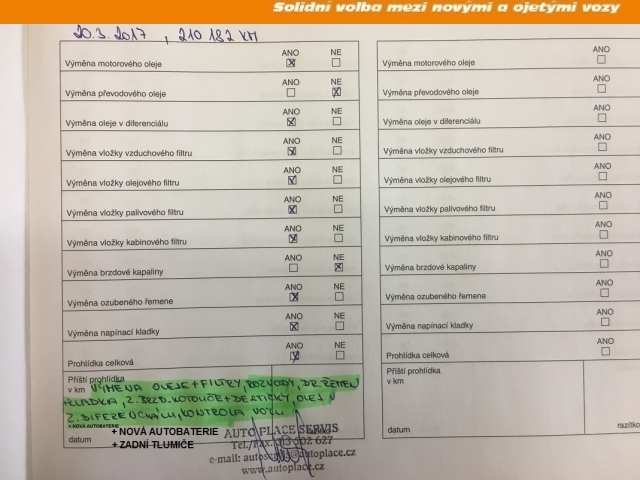 Solidní volba mezi novými a ojetými vozy
20.3.2017 , 210 182 KM
ANO NE
Výměna motorového oleje
ANO NE
Výměna převodového oleje
ANO NE
Výměna oleje v diferenciálu
ANO NE
Výměna vložky vzduchového filtru
ANO NE
Výměna vložky olejového filtru
ANO NE
Výměna vložky palivového filtru
ANO NE
Výměna vložky kabinového filtru
ANO NE
Výměna brzdové kapaliny
ANO NE
Výměna ozubeného řemene
ANO NE
Výměna napínací kladky
ANO NE
Prohlídka celková
Příští prohlídka
v km VÝMĚNA OLEJE + FILTRY, ROZVODY, DR. ŘEMEN
+ KLADKA, Z. BRZD. KOTOUČE + DESTIČKY, OLEJ V
Z. DIFERENCIÁLU, KONTROLA VOZU
+ NOVÁ AUTOBATERIE
+ NOVÁ AUTOBATERIE
datum + ZADNÍ TLUMIČE
AUTO PLACE SERVIS
Tel./Fax: 313 502 627
e-mail: @autoplace.cz
www.autoplace.cz
ANO
Výměna motorového oleje
ANO
Výměna převodového oleje
ANO
Výměna oleje v diferenciálu
ANO
Výměna vložky vzduchového filtru
ANO
Výměna vložky olejového filtru
ANO
Výměna vložky palivového filtru
ANO
Výměna vložky kabinového filtru
ANO
Výměna brzdové kapaliny
ANO
Výměna ozubeného řemene
ANO
Výměna napínací kladky
ANO
Prohlídka celková
Příští prohlídka
v km
datum razítko